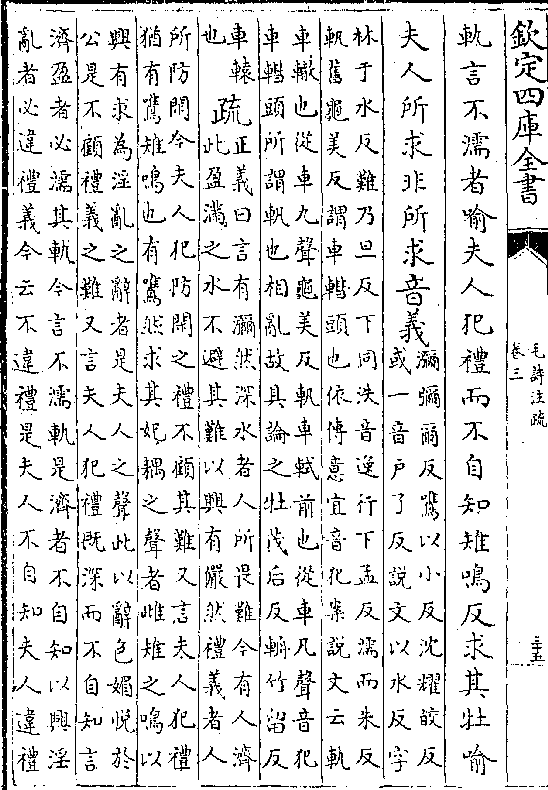 欽定四庫全書
毛詩注疏
卷三
三十五
軌言不濡者喻夫人犯禮而不自知雉鳴反求其牡喻
夫人所求非所求音義
瀰彌爾反鷕以小反沈耀皎反
或一音戶了反說文以水反字
林于水反難乃旦反下同泆音逸行下孟反濡而朱反
軌舊龜美反謂車轊頭也依傳意宜音犯案說文云軌
車轍也從車九聲龜美反軓車軾前也從車凡聲音犯
車轊頭所謂軹也相亂故具論之牡茂后反輈竹留反
車轅
也
疏
正義曰言有瀰然深水者人所畏難今有人濟
此盈滿之水不避其難以興有儼然禮義者人
所防閑今夫人犯防閑之禮不顧其難又言夫人犯禮
猶有鷕雉鳴也有鷕然求其妃耦之聲者雌雉之鳴以
興有求為淫亂之辭者是夫人之聲此以辭色媚悅於
公是不顧禮義之難又言夫人犯禮既深而不自知言
濟盈者必濡其軌今言不濡軌是濟者不自知以興淫
亂者必違禮義今云不違禮是夫人不自知夫人違禮